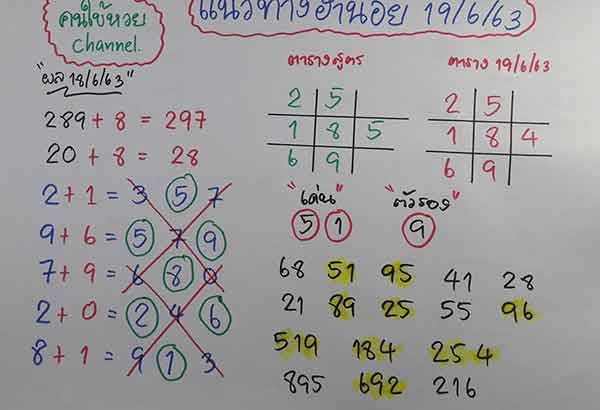 คนใบ้หวย
Channel.
แนวทางฮานอย 19/6/63
"ผล 18/6/63"
289 + 8 = 297
20 + 8 = 28
2 + 1 = 3 5 7
9 + 6 = 5 7 9
7 + 9 = 6 8 0
2 + 0 = 2 4 6
8 + 1 = 9 1 3
ตารางสูตร
2 5
1 8 5
6 9
ตาราง 19/6/63
2 5
1 8 4
6 9
"เด่น"
5 1
"ตัวรอง"
9
68 51 95 41 28
21 89 25 55 96
519 184 254
895 692 216